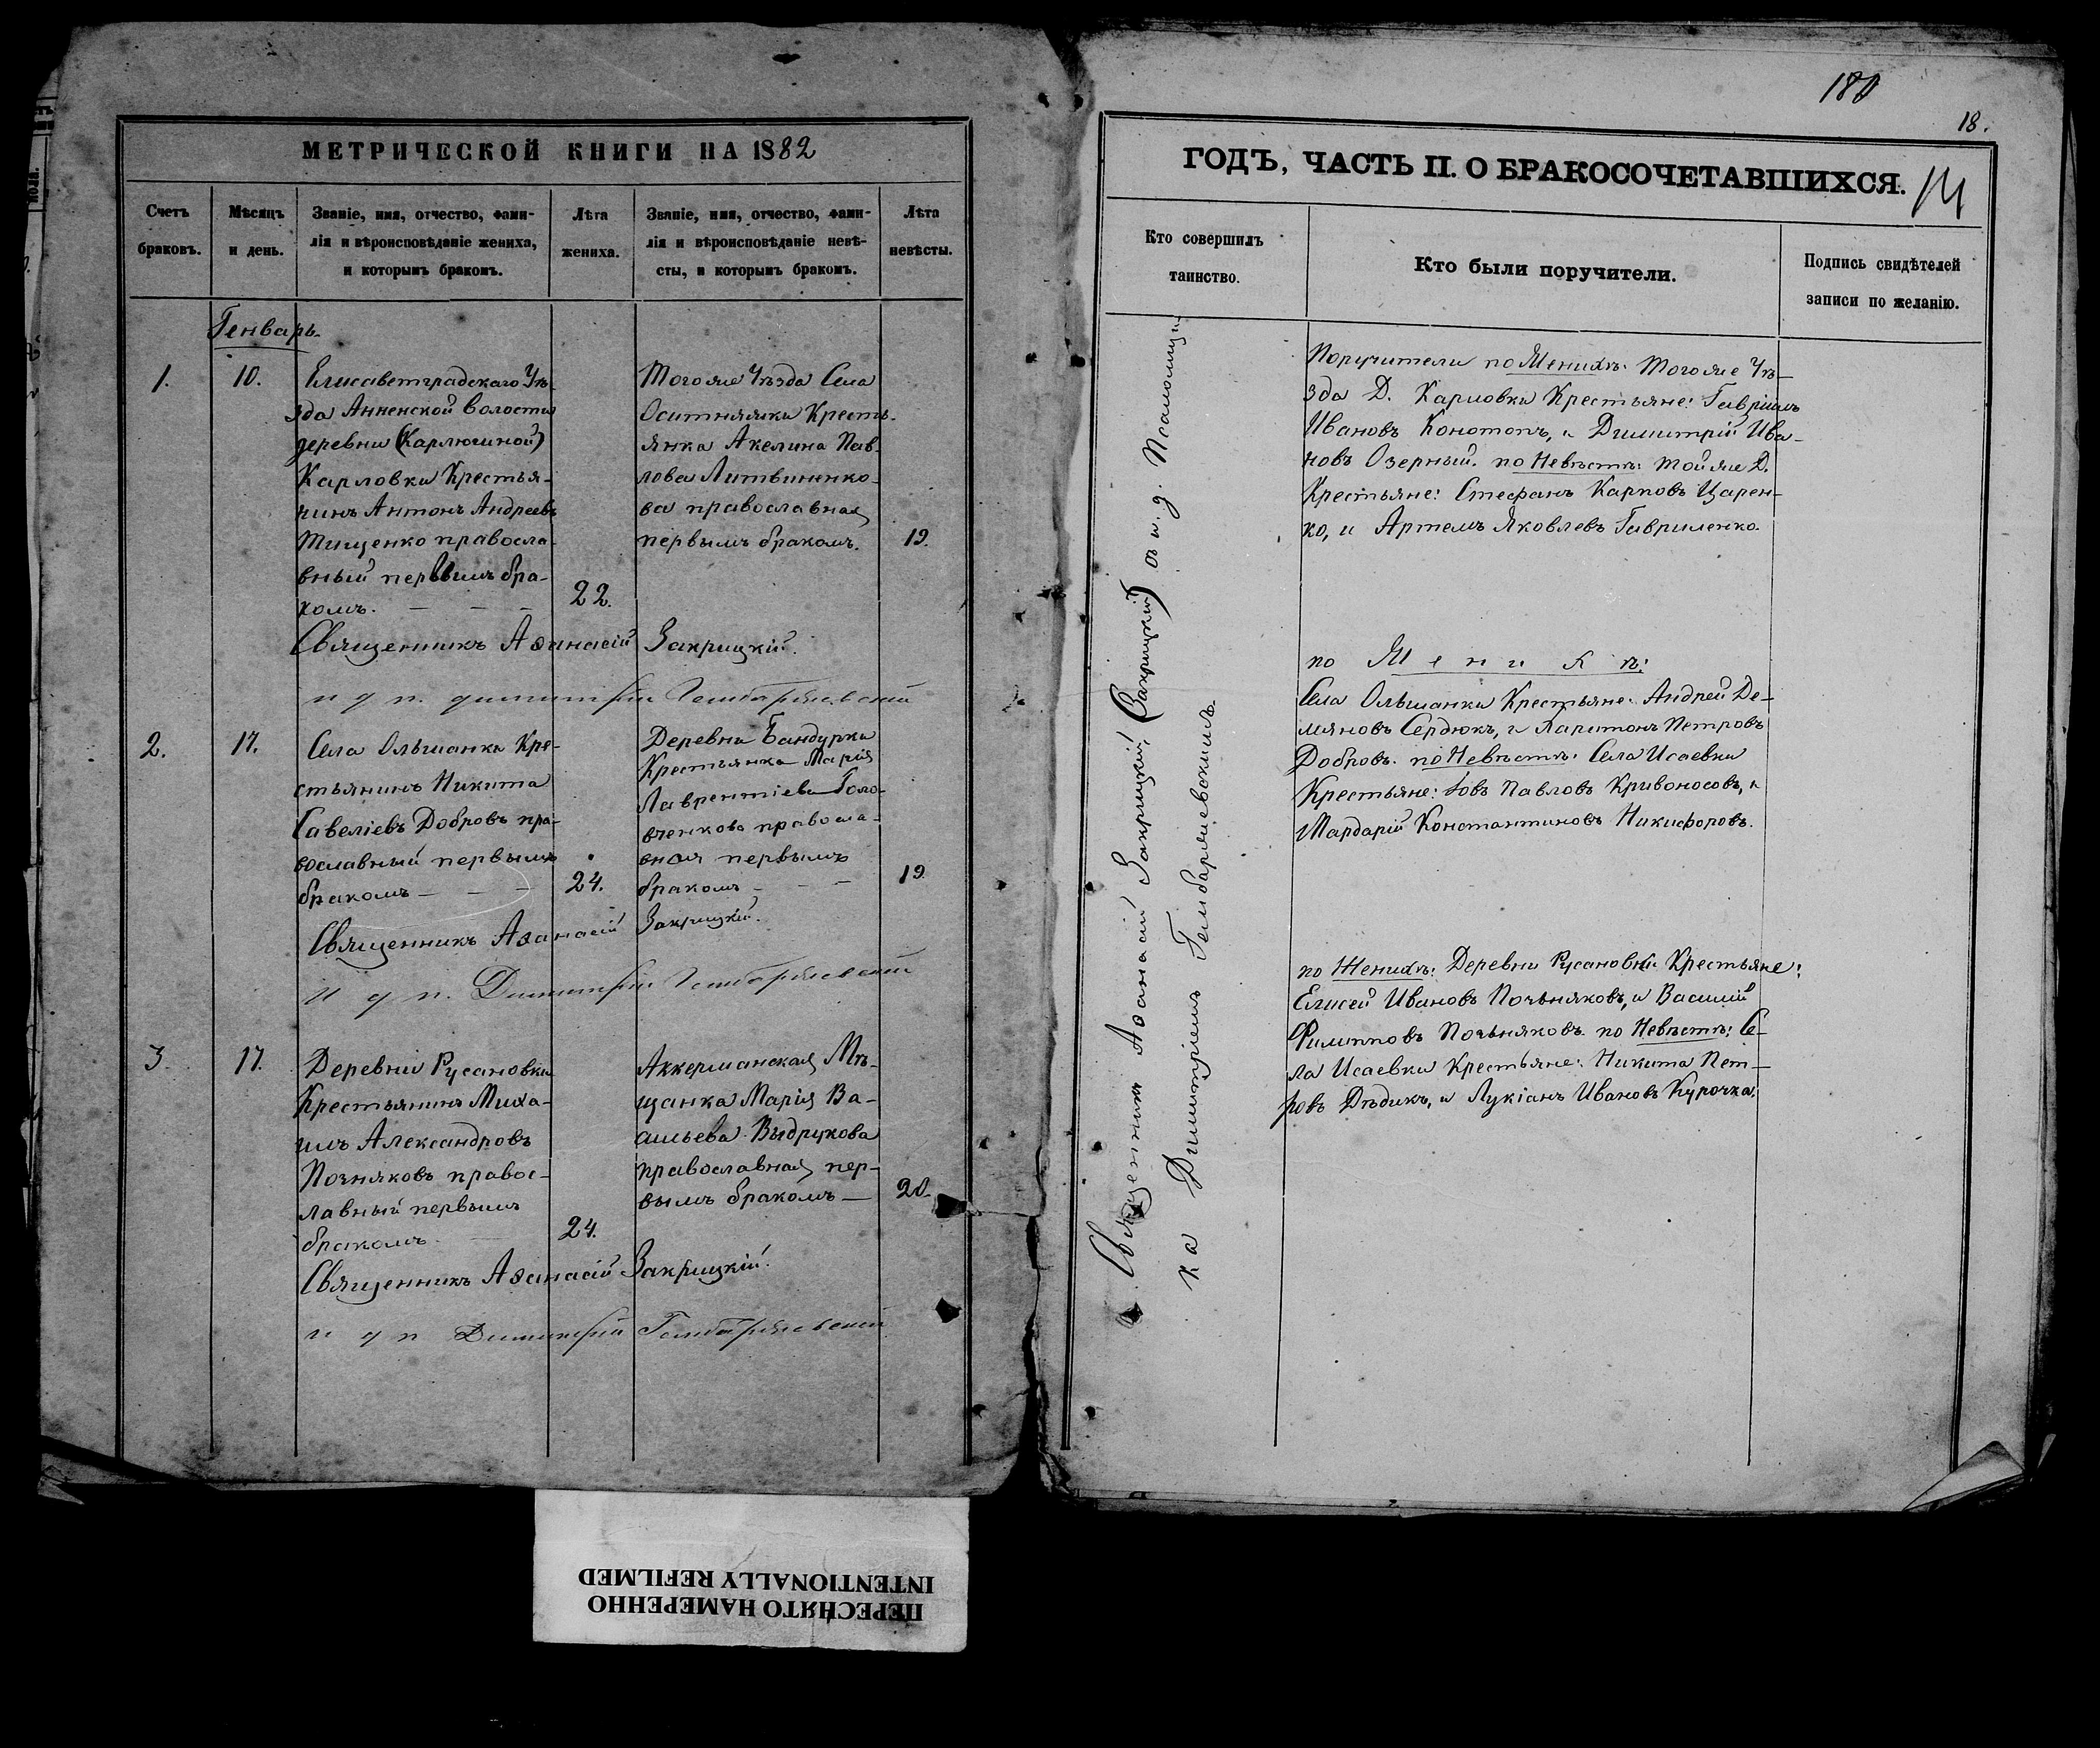 МЕТРИЧЕСКОЙ КНИГИ НА 1882
Счетъ
браковъ.
Мѣсяцъ
и день.
Званіе, имя, отчество, фами-
лія и вѣроисповѣданіе жениха,
и которымъ бракомъ.
Лѣта
жениха.
Званіе, имя, отчество, фами-
лія и вѣроисповѣданіе невѣ-
сты, и которымъ бракомъ.
Лѣта
невѣсты.
Генварь.
1.
10.
Елисаветградскаго Уѣ-
зда Анненской волости
деревни (Карлюгиной)
Карловки Крестья-
нинъ Антонъ Андреевъ
Тищенко правосла-
вный первымъ бра-
комъ.
22.
Того же Уѣзда Села
Оситняжки Кресть-
янка Акелина Пав-
лова Литвиненко-
ва православная
первымъ бракомъ.
19.
Священникъ Аѳанасій Закрицкій.
и д п. Димитрій Гембаржевскій
2.
17.
Села Ольшанки Кре-
стьянинъ Никита
Савеліевъ Добровъ пра-
вославный первымъ
бракомъ
24.
Деревни Бандурки
Крестьянка Марія
Лаврентіева Голо-
вченкова правосла-
вная первымъ
бракомъ
19
Священникъ Аѳанасій Закрицкій.
и д п. Димитрій Гембаржевскій
3.
17.
Деревни Русановки
Крестьянинъ Миха-
илъ Александровъ
Почняковъ правос-
лавный первымъ
бракомъ
24.
Аккерманская Мѣ-
щанка Марія Ва-
сильева Выдрукова
православная пер-
вымъ бракомъ
20.
Священникъ Аѳанасій Закрицкій.
и д п Димитрій Гембаржевскій
180
18.
ГОДЪ, ЧАСТЬ II. О БРАКОСОЧЕТАВШИХСЯ.
Кто совершилъ
таинство.
Кто были поручители.
Подпись свидѣтелей
записи по желанію.
Священникъ Аѳанасій Закрицкій (Закрицкій) съ и. д. Псаломщи-
ка Димитріемъ Гембаржевскимъ.
Поручители по Женихѣ: Того же Уѣ-
зда Д. Карловки Крестьяне: Гавріилъ
Ивановъ Конотопъ, и Димитрій Ива-
новъ Озерный. по Невѣстѣ: той же Д.
Крестьяне: Стефанъ Карповъ Царен-
ко, и Артемъ Яковлевъ Гавриленко.
по Женихѣ:
Села Ольшанки Крестьяне: Андрей Де-
мяновъ Сердюкъ, и Харитонъ Петровъ
Добровъ. по Невѣстѣ: Села Исаевки
Крестьяне: Іовъ Павловъ Кривоносовъ, и
Мардарій Константиновъ Никифоровъ.
по Женихѣ: Деревни Русановки Крестьяне:
Елисей Ивановъ Почьняковъ, и Василій
Филипповъ Почьняковъ. по Невѣстѣ: Се-
ла Исаевки Крестьяне: Никита Пет-
ровъ Дѣдикъ, и Лукіанъ Ивановъ Курочка.
ПЕРЕСНЯТО НАМЕРЕННО
INTENTIONALLY REFILMED